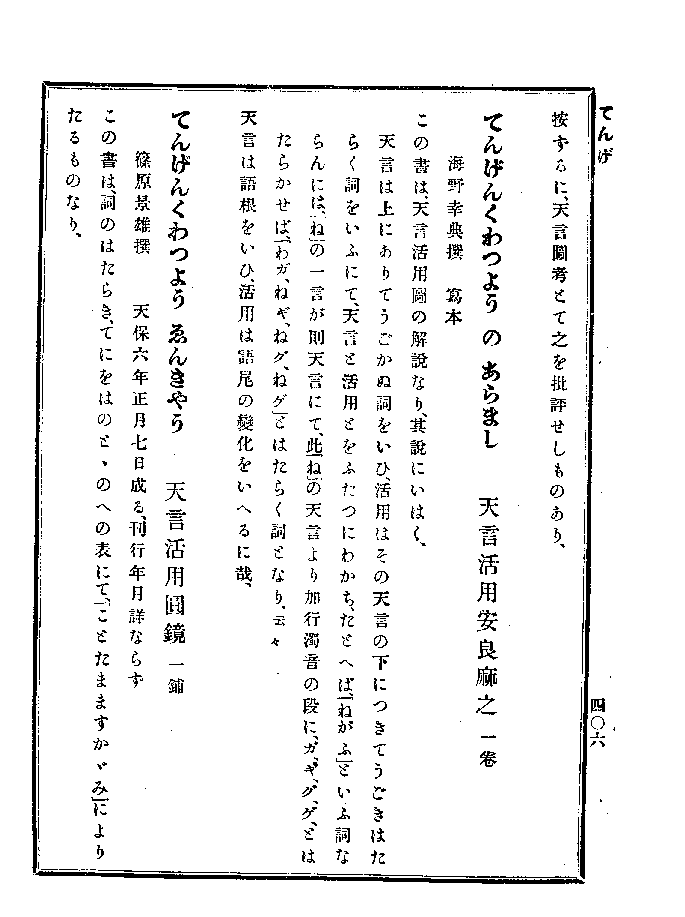 てんげ
四〇六
按ずるに、天言圖考とて之を批評せしものあり、
てんげんくわつよう の あらまし 天言活用安良麻之 一卷
海野幸典撰 寫本
この書は、天言活用圖の解說なり、其說にいはく、
天言は上にありてうごかぬ詞をいひ、活用はその天言の下につきてうごきはた
らく詞をいふにて、天言と活用とをふたつにわかち、たとへば「ねがふ」といふ詞な
らんには、「ね」の一言が則天言にて、此「ね」の天言より加行濁音の段に、ガ、ギ、グ、ゲ、とは
たらかせば、「わガ、ねギ、ねグ、ねゲ」とはたらく詞となり、云々
天言は語根をいひ、活用は語尾の變化をいへるに哉、
てんげんくわつよう ゑんきやう 天言活用圓鏡 一鋪
篠原景雄撰 天保六年正月七日成る、刊行年月詳ならず
この書は、詞のはたらき、てにをはのとゝのへの表にて、「ことたまますかゞみ」により
たるものなり、